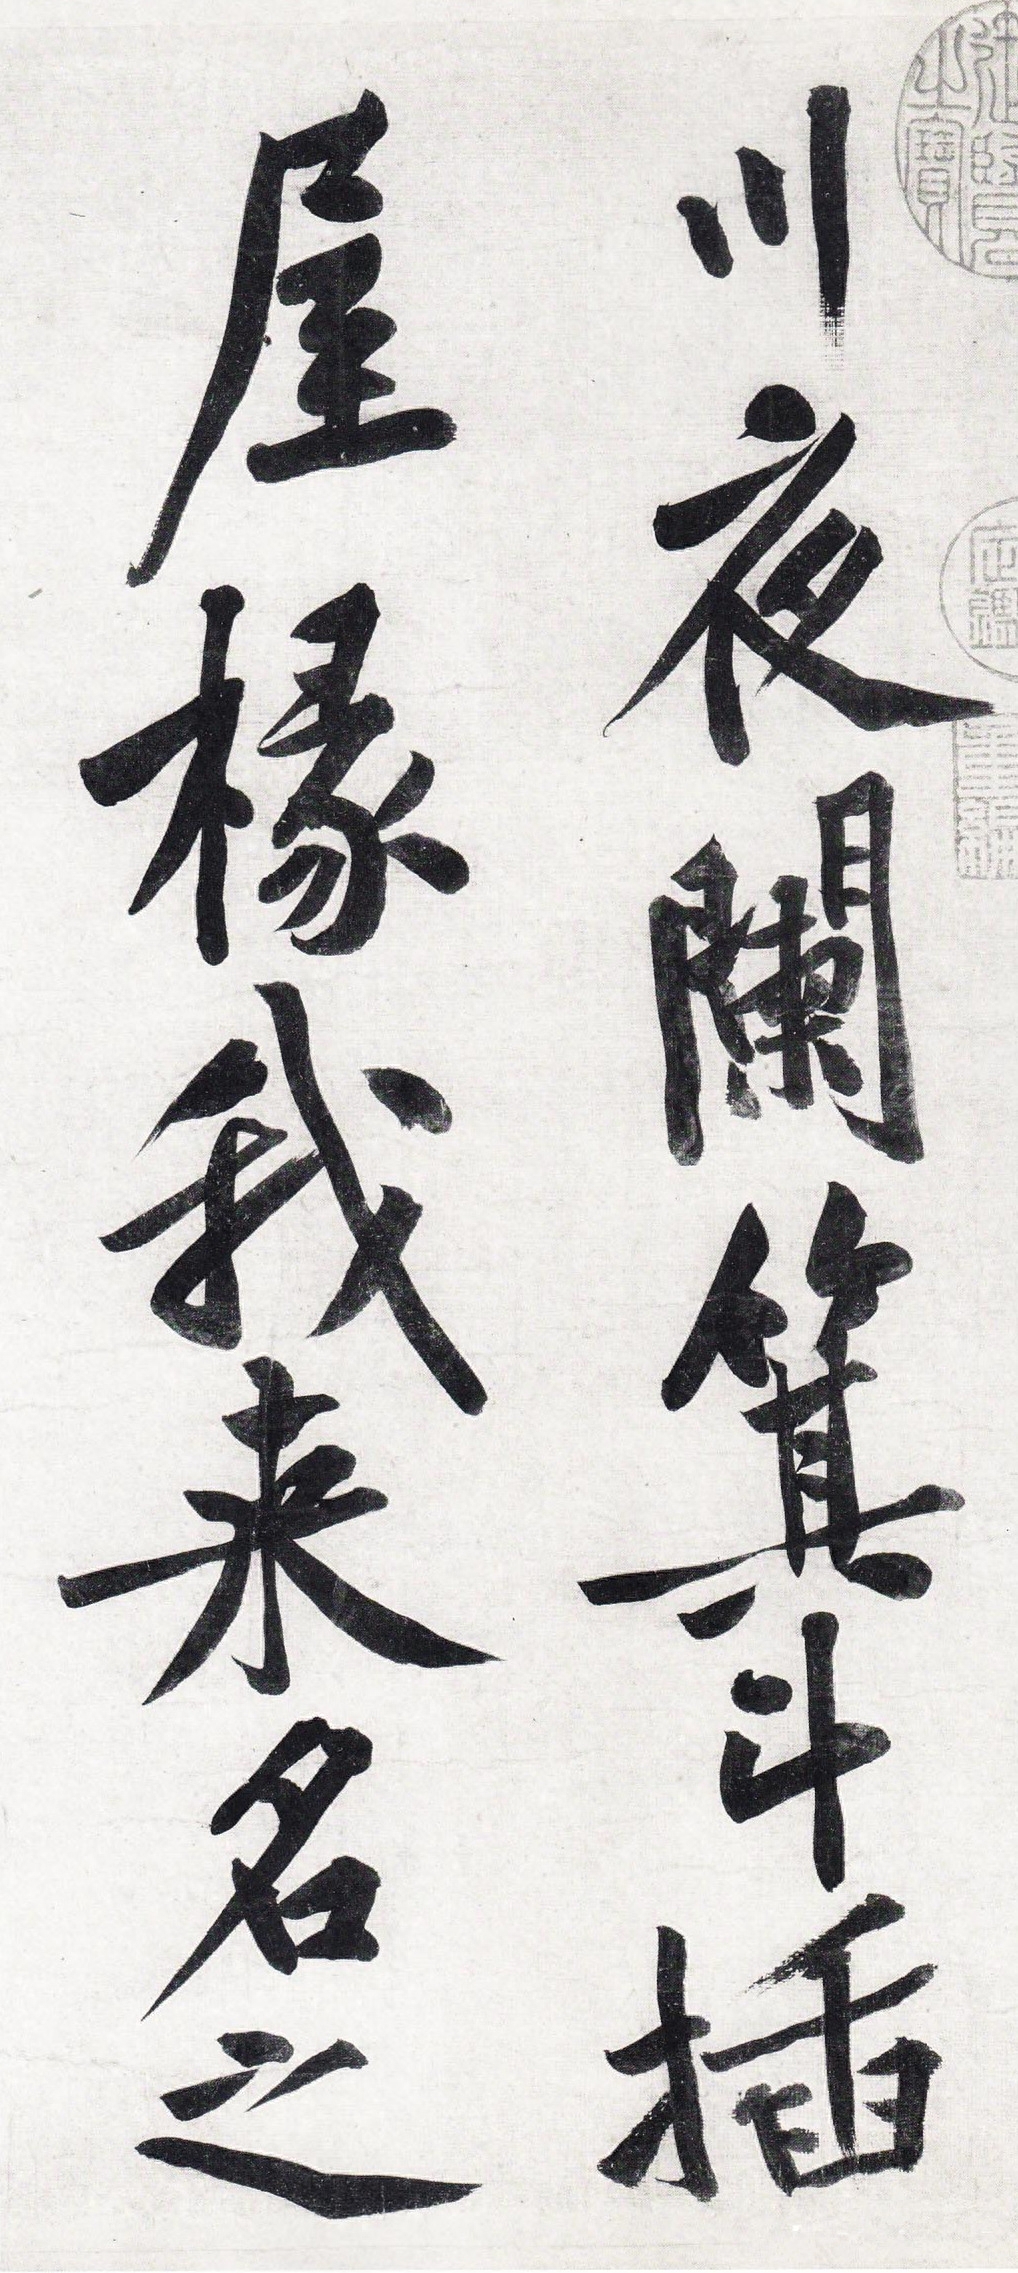 川夜闌箕斗插
屋椽我来名之